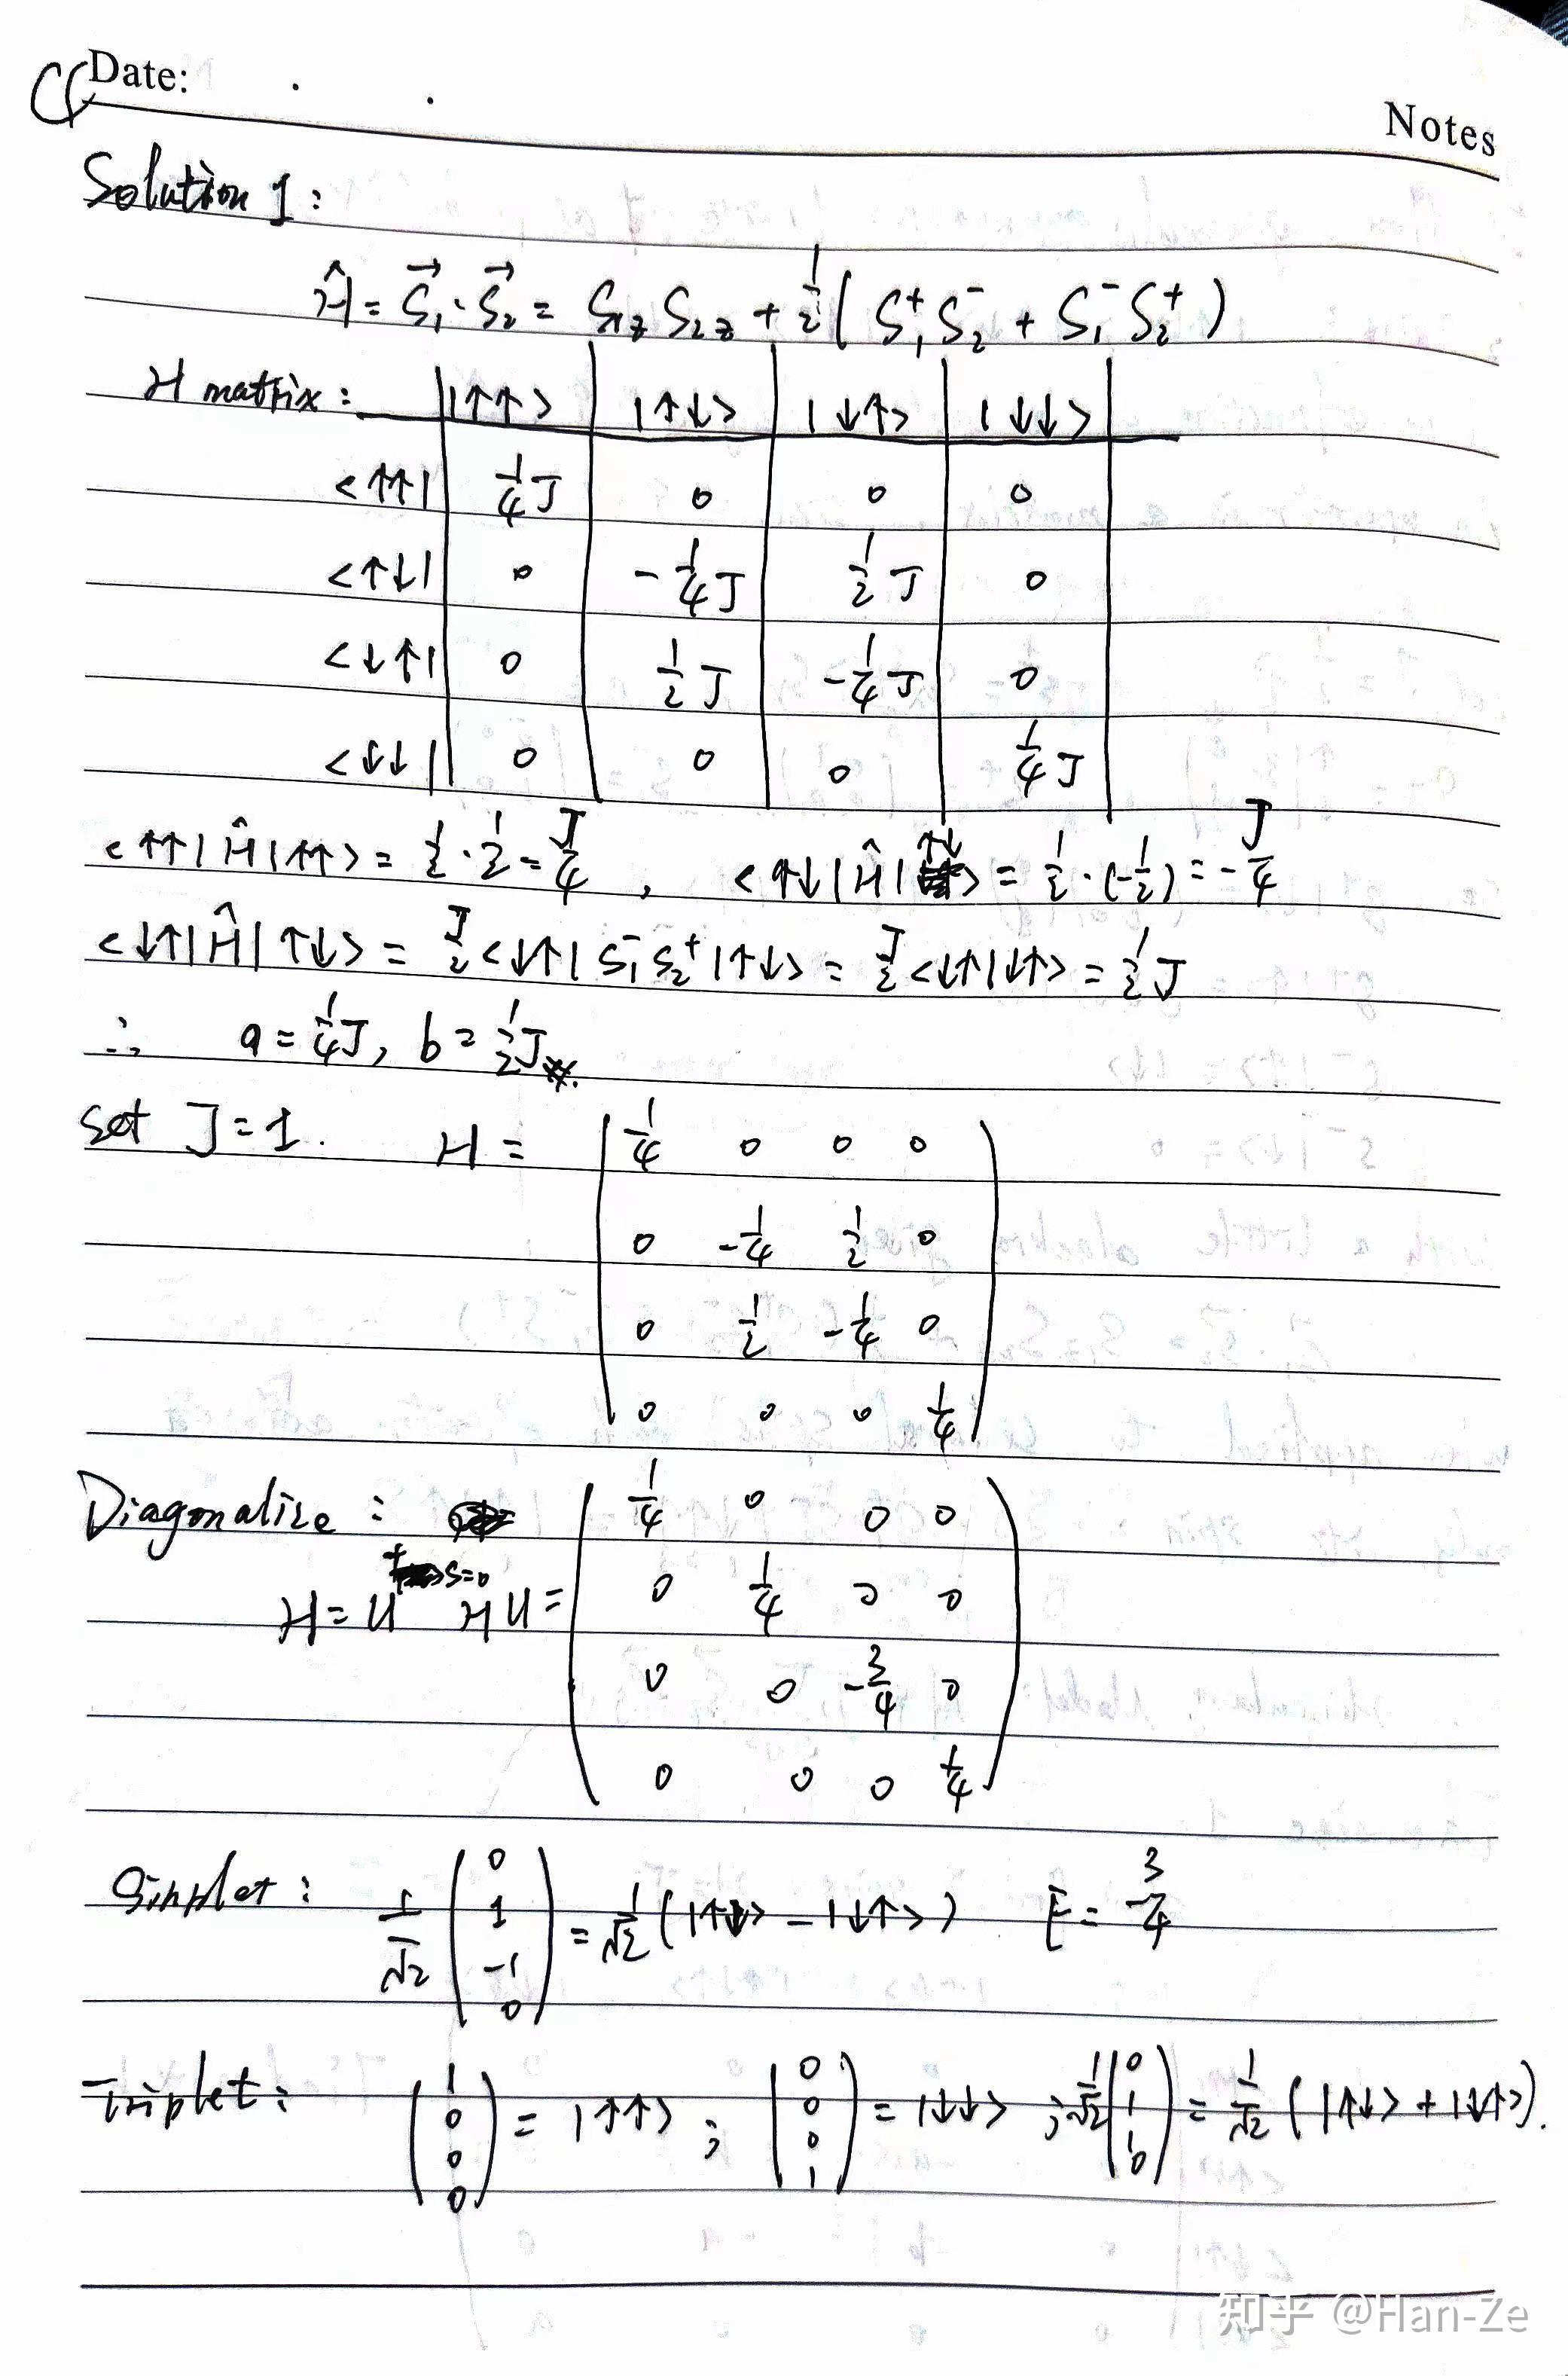 Date:
Notes
Solution 1:
Ĥ = S⃗₁·S⃗₂ = S₁z S₂z + 1/2 ( S₁⁺ S₂⁻ + S₁⁻ S₂⁺ )
H matrix: |↑↑> |↑↓> |↓↑> |↓↓>
<↑↑| 1/4 J 0 0 0
<↑↓| 0 -1/4 J 1/2 J 0
<↓↑| 0 1/2 J -1/4 J 0
<↓↓| 0 0 0 1/4 J
<↑↑|Ĥ|↑↑> = 1/2 · 1/2 = J/4 , <↑↓|Ĥ|↑↓> = 1/2 · (-1/2) = -J/4
<↓↑|Ĥ|↑↓> = J/2 <↓↑| S₁⁻ S₂⁺ |↑↓> = J/2 <↓↑|↓↑> = 1/2 J
∴ a = 1/4 J, b = 1/2 J
Set J = 1. H =
1/4 0 0 0
0 -1/4 1/2 0
0 1/2 -1/4 0
0 0 0 1/4
Diagonalize:
H = U† H U =
s=0
1/4 0 0 0
0 1/4 0 0
0 0 -3/4 0
0 0 0 1/4
Sinplet: 1/√2 (0 1 -1 0) = 1/√2 (|↑↓> - |↓↑>) E = -3/4
Triplet: (1 0 0 0) = |↑↑> ; (0 0 0 1) = |↓↓> ; 1/√2 (0 1 1 0) = 1/√2 ( |↑↓> + |↓↑>).
知乎 @Han-Ze